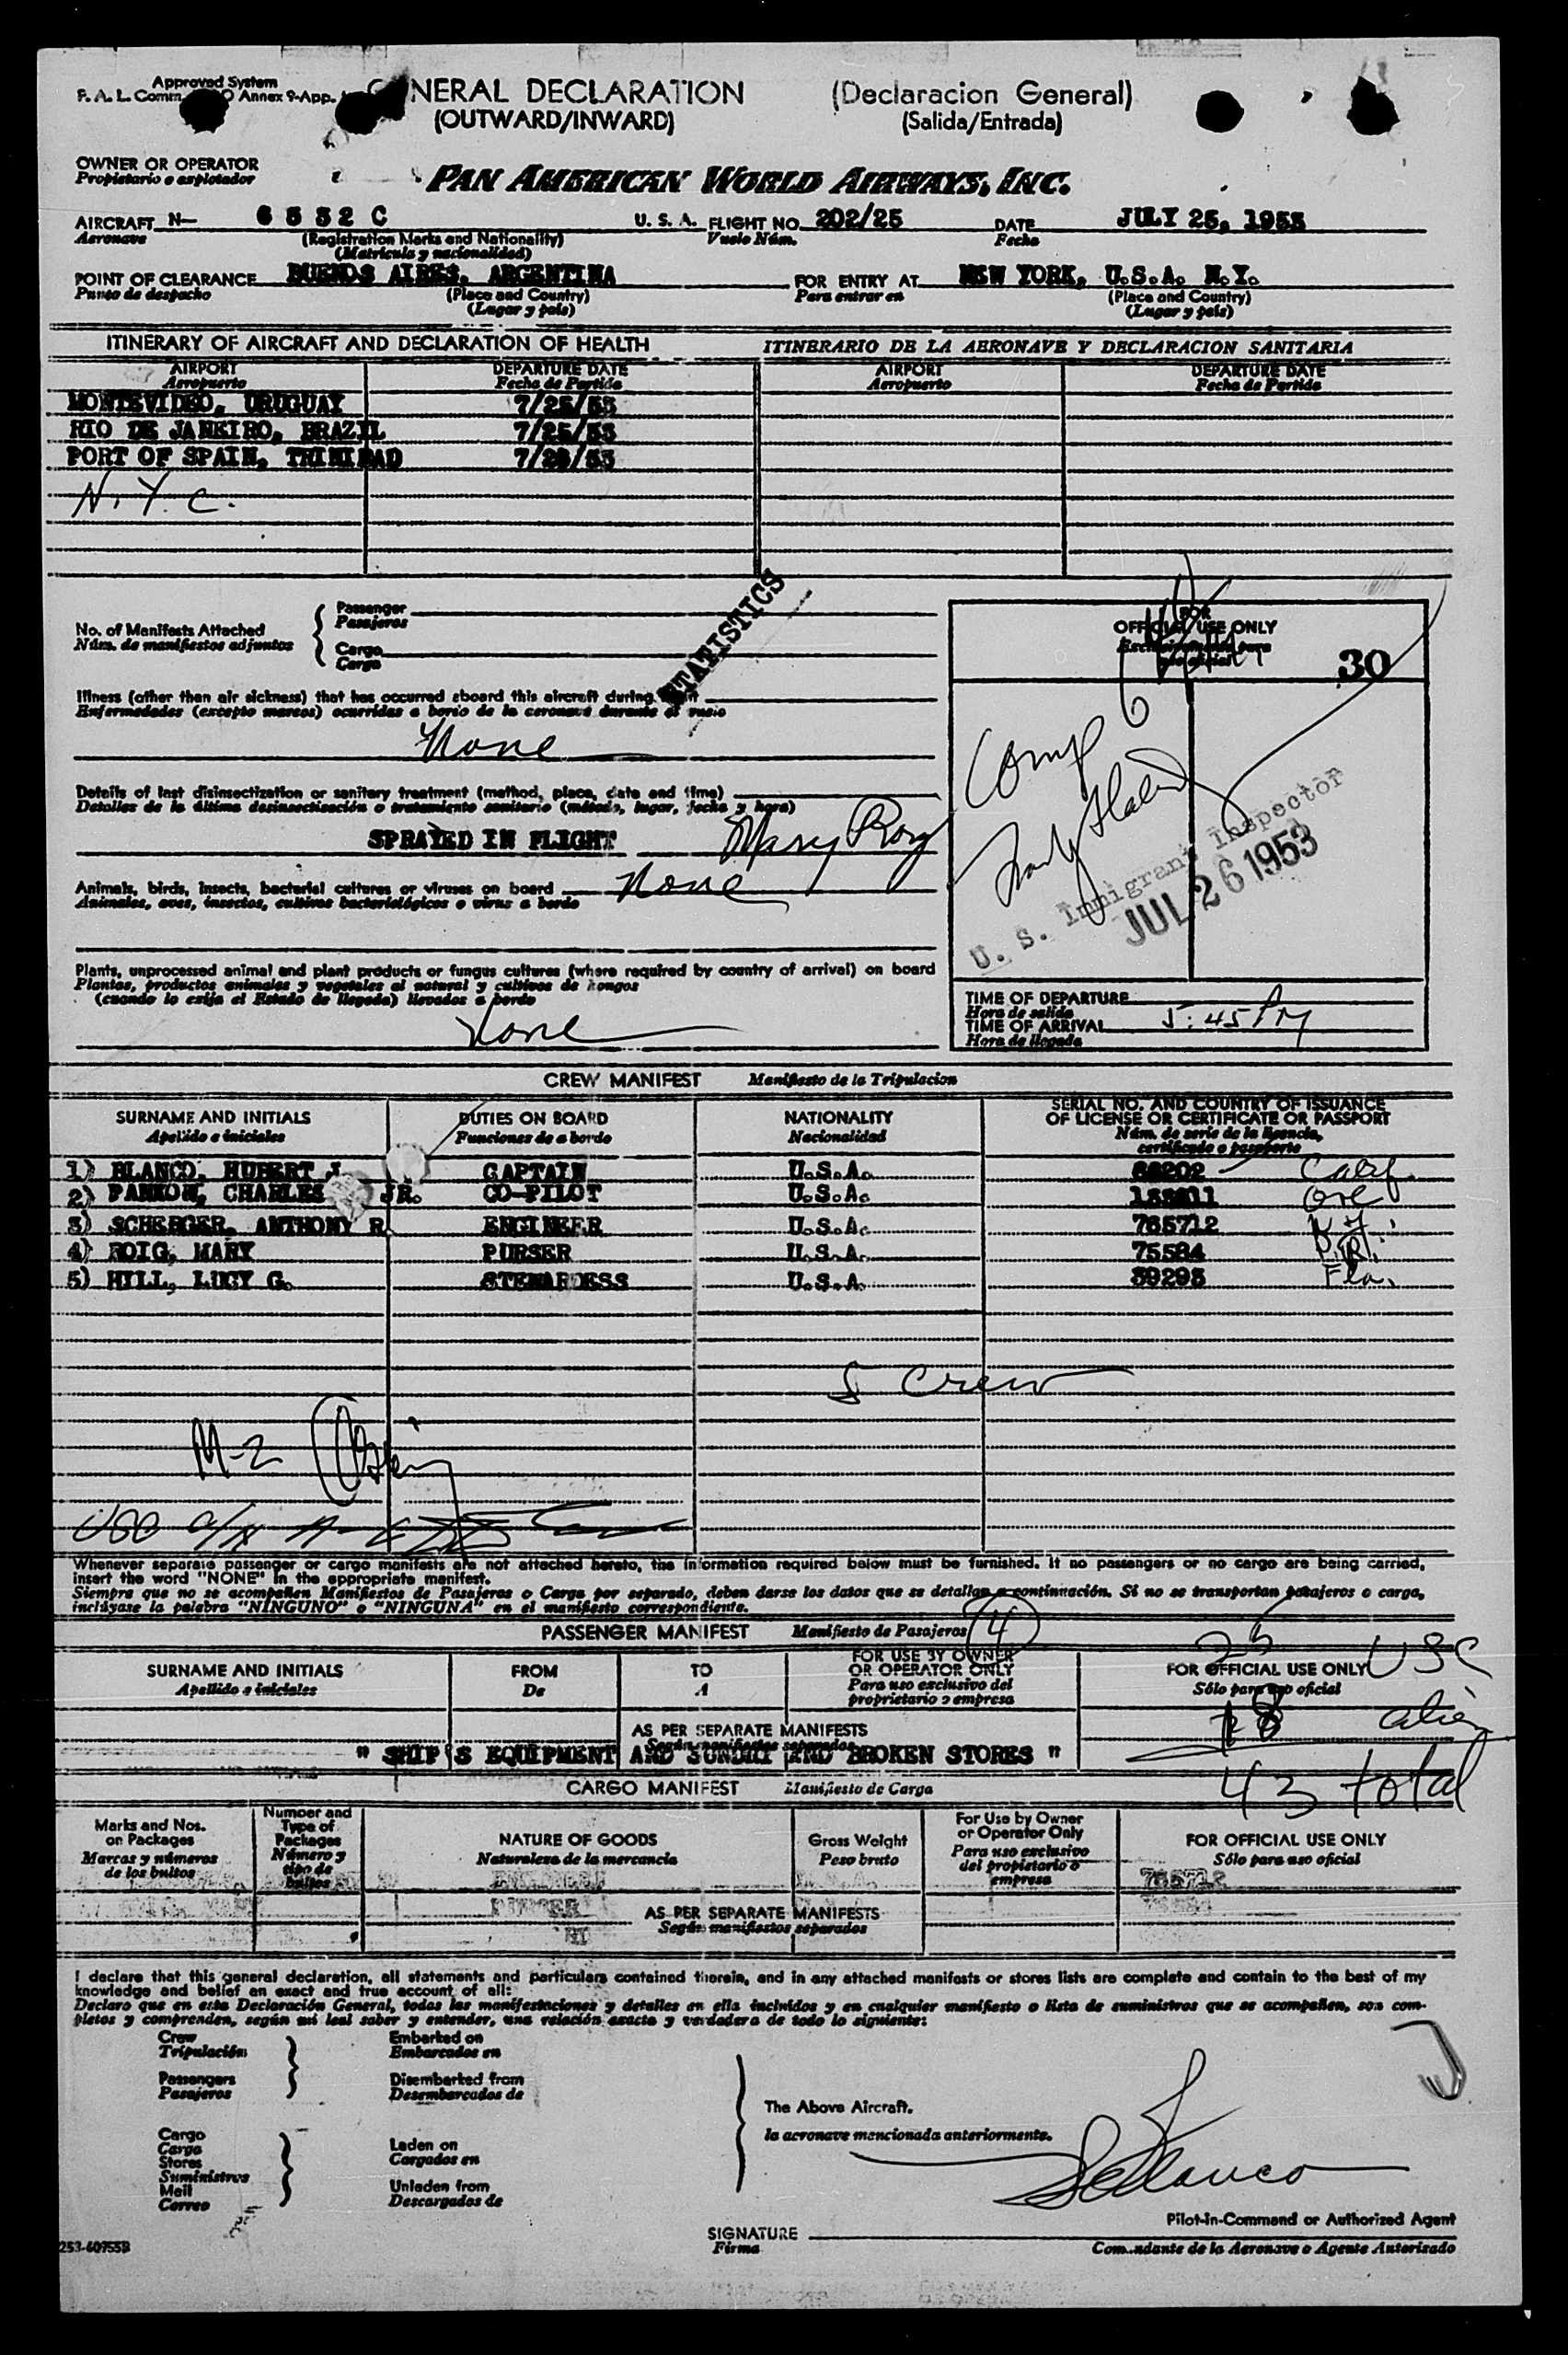 Approved System
F. A. L. Comm. Annex 9-App.
GENERAL DECLARATION (Declaracion General)
(OUTWARD/INWARD) (Salida/Entrada)
OWNER OR OPERATOR
Propietario o explotador
PAN AMERICAN WORLD AIRWAYS, INC.
AIRCRAFT N- 6532 C U. S. A. FLIGHT NO. 202/25 DATE JULY 25, 1953
Aeronave (Registration Marks and Nationality) Vuelo Núm. Fecha
(Matricula y nacionalidad)
POINT OF CLEARANCE BUENOS AIRES, ARGENTINA FOR ENTRY AT NEW YORK, U.S.A. N.Y.
Punto de despacho (Place and Country) Para entrar en (Place and Country)
(Lugar y país) (Lugar y país)
ITINERARY OF AIRCRAFT AND DECLARATION OF HEALTH ITINERARIO DE LA AERONAVE Y DECLARACION SANITARIA
AIRPORT DEPARTURE DATE AIRPORT DEPARTURE DATE
Aeropuerto Fecha de Partida Aeropuerto Fecha de Partida
MONTEVIDEO, URUGUAY 7/25/53
RIO DE JANEIRO, BRAZIL 7/25/53
PORT OF SPAIN, TRINIDAD 7/26/53
N.Y.C.
STATISTICS
No. of Manifests Attached
Núm. de manifiestos adjuntos
Passenger
Pasajeros
Cargo
Carga
FOR
OFFICIAL USE ONLY
Exclusivamente para
uso oficial
30
Illness (other than air sickness) that has occurred aboard this aircraft during
Enfermedades (excepto mareos) ocurridas a bordo de la aeronave durante el vuelo
None
Comp
Details of last disinsectization or sanitary treatment (method, place, date and time)
Detalles de la última desinsectización o tratamiento sanitario (método, lugar, fecha y hora)
SPRAYED IN FLIGHT Mary Roig
U. S. Immigrant Inspector
JUL 26 1953
Animals, birds, insects, bacterial cultures or viruses on board None
Animales, aves, insectos, cultivos bacteriológicos o virus a bordo
Plants, unprocessed animal and plant products or fungus cultures (where required by country of arrival) on board
Plantas, productos animales y vegetales al natural y cultivos de hongos
(cuando lo exija el Estado de llegada) llevados a bordo
None
TIME OF DEPARTURE
Hora de salida
TIME OF ARRIVAL 5:45 PM
Hora de llegada
CREW MANIFEST Manifiesto de la Tripulacion
SURNAME AND INITIALS DUTIES ON BOARD NATIONALITY SERIAL NO. AND COUNTRY OF ISSUANCE
OF LICENSE OR CERTIFICATE OR PASSPORT
Apellido e iniciales Funciones de a bordo Nacionalidad Núm. de serie de la licencia,
certificado o pasaporte
1) BLANCO, HUBERT J. CAPTAIN U.S.A. 66202 Calif.
2) PARKON, CHARLES JR. CO-PILOT U.S.A. Ore
3) SCHERGER, ANTHONY R. ENGINEER U.S.A. 765712 N.Y.
4) ROIG, MARY PURSER U.S.A. 75584 P.R.
5) HILL, LUCY G. STEWARDESS U.S.A. 39293 Fla.
5 Crew
M-2
Whenever separate passenger or cargo manifests are not attached hereto, the information required below must be furnished. If no passengers or no cargo are being carried,
insert the word "NONE" in the appropriate manifest.
Siempre que no se acompañen Manifiestos de Pasajeros o Carga por separado, deben darse los datos que se detallan a continuación. Si no se transportan pasajeros o carga,
inclúyase la palabra "NINGUNO" o "NINGUNA" en el manifiesto correspondiente.
PASSENGER MANIFEST Manifiesto de Pasajeros 4
25 USC
SURNAME AND INITIALS FROM TO FOR USE BY OWNER
OR OPERATOR ONLY FOR OFFICIAL USE ONLY
Apellido e iniciales De A Para uso exclusivo del
propietario o empresa Sólo para uso oficial
18 alien
AS PER SEPARATE MANIFESTS
Según manifiestos separados
" SHIP'S EQUIPMENT AND SUNDRY AND BROKEN STORES "
43 total
CARGO MANIFEST Manifiesto de Carga
Marks and Nos.
on Packages
Marcas y números
de los bultos
Number and
Type of
Packages
Número y
tipo de
bultos
NATURE OF GOODS
Naturaleza de la mercancía
Gross Weight
Peso bruto
For Use by Owner
or Operator Only
Para uso exclusivo
del propietario o
empresa
FOR OFFICIAL USE ONLY
Sólo para uso oficial
AS PER SEPARATE MANIFESTS
Según manifiestos separados
I declare that this general declaration, all statements and particulars contained therein, and in any attached manifests or stores lists are complete and contain to the best of my
knowledge and belief an exact and true account of all:
Declaro que en esta Declaración General, todas las manifestaciones y detalles en ella incluidos y en cualquier manifiesto o lista de suministros que se acompañen, son com-
pletos y comprenden, según mi leal saber y entender, una relación exacta y verdadera de todo lo siguiente:
Crew Embarked on
Tripulación Embarcados en
Passengers Disembarked from
Pasajeros Desembarcados de
The Above Aircraft.
la aeronave mencionada anteriormente.
Cargo Laden on
Carga Cargados en
Stores
Suministros
Mail Unladen from
Correo Descargados de
Blanco
Pilot-in-Command or Authorized Agent
SIGNATURE
Firma Comandante de la Aeronave o Agente Autorizado
253-60755B